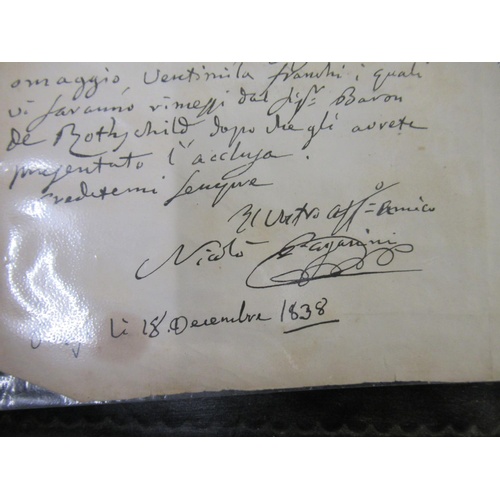 omaggio, Ventimila franchi; i quali
vi saranno rimessi dal Sigr. Baron
de Rothschild dopo che gli avrete
presentato l'acclusa.
Credetemi sempre
Il vostro affo. amico
Nicolò Paganini
lì 18. Decembre 1838